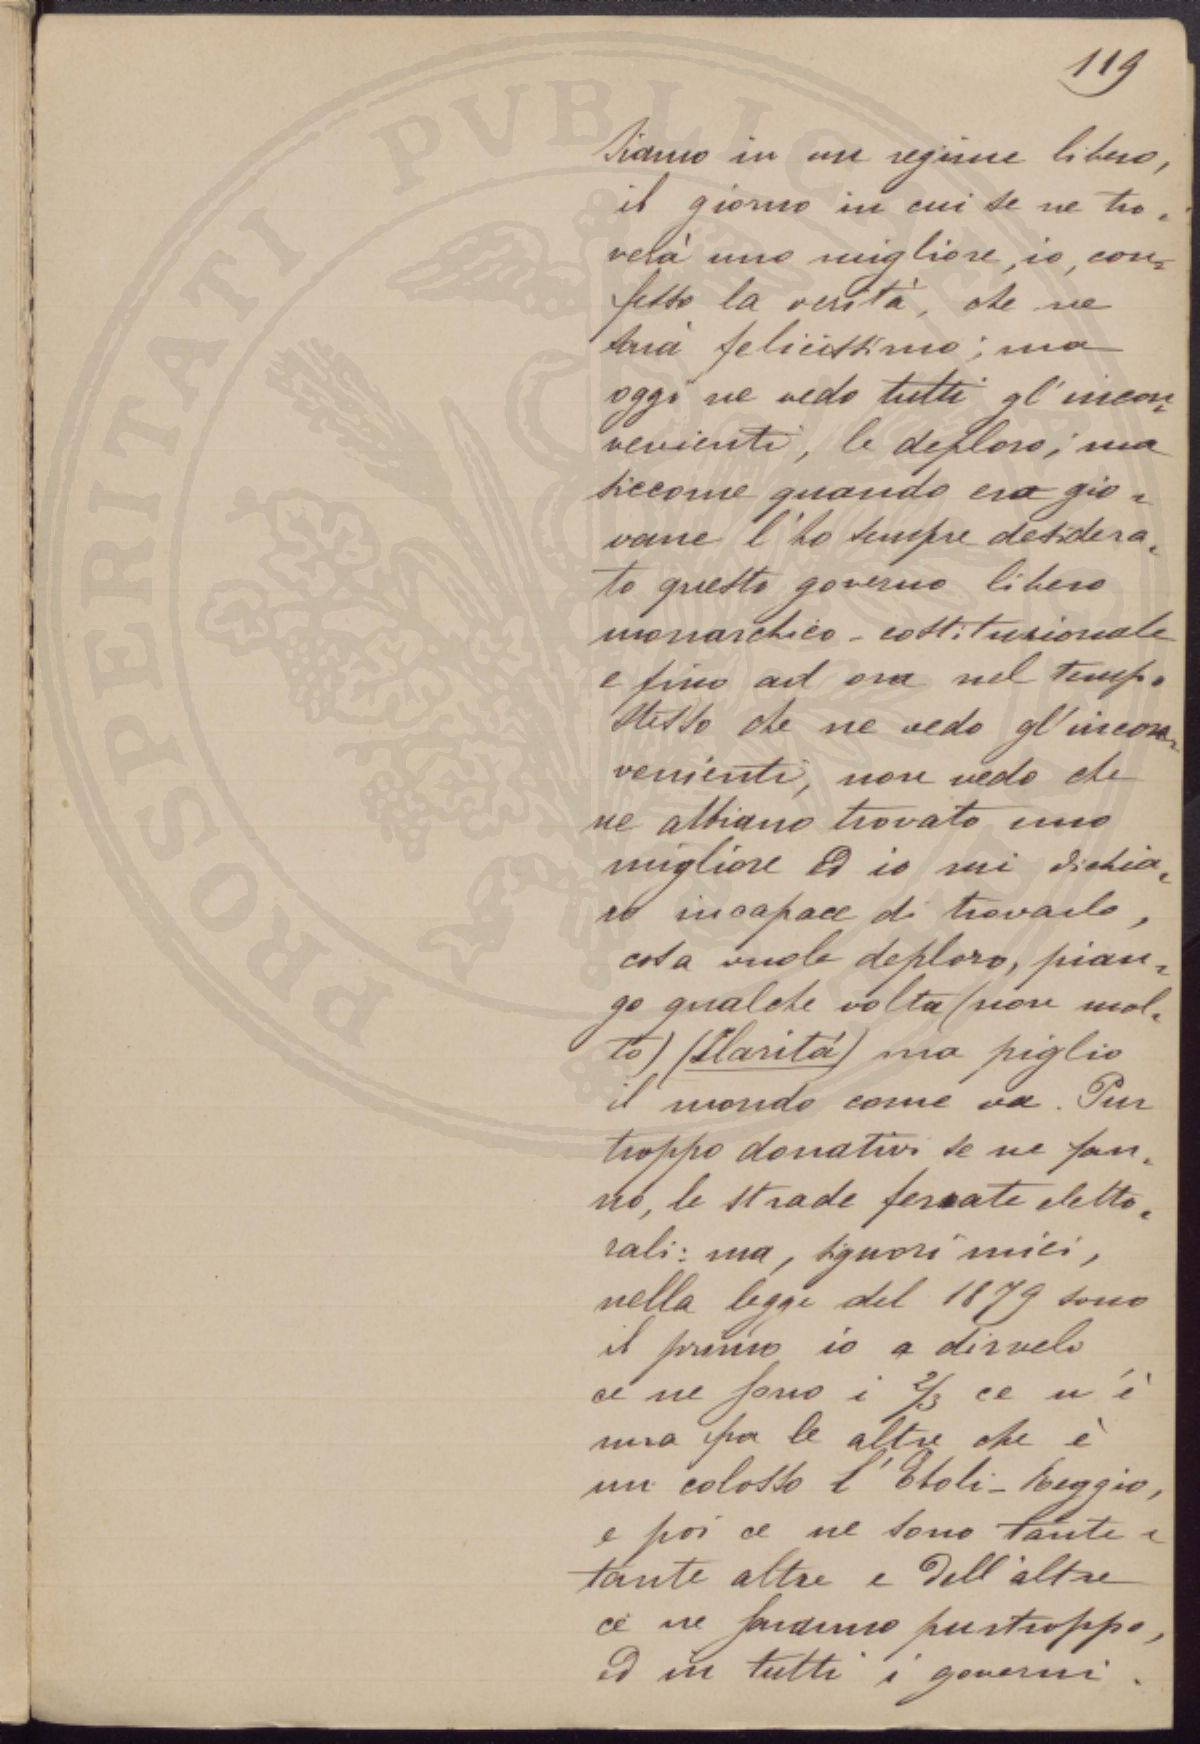 119
siamo in un regime libero,
il giorno in cui se ne tro-
verà uno migliore, io, con-
fesso la verità, che ne
sarà felicissimo; ma
oggi ne vedo tutti gl'incon-
venienti, le deploro; ma
siccome quando era gio-
vane l'ho sempre desidera-
to questo governo libero
monarchico-costituzionale
e fino ad ora nel tempo
stesso che ne vedo gl'incon-
venienti, non vedo che
ne abbiano trovato uno
migliore ed io mi dichia-
ro incapace di trovarlo,
cosa vuole deploro, pian-
go qualche volta (non mol-
to) (Ilarità) ma piglio
il mondo come va. Pur
troppo donativi se ne fan-
no, le strade ferrate eletto-
rali: ma, signori miei,
nella legge del 1879 sono
il primo io a dirvelo
ce ne sono i 2/3 ce n'è
una fra le altre che è
un colosso l'Eboli-Reggio,
e poi ce ne sono tante e
tante altre e dell'altre
ce ne saranno purtroppo,
ed in tutti i governi.
PROSPERITATI PVBLICAE